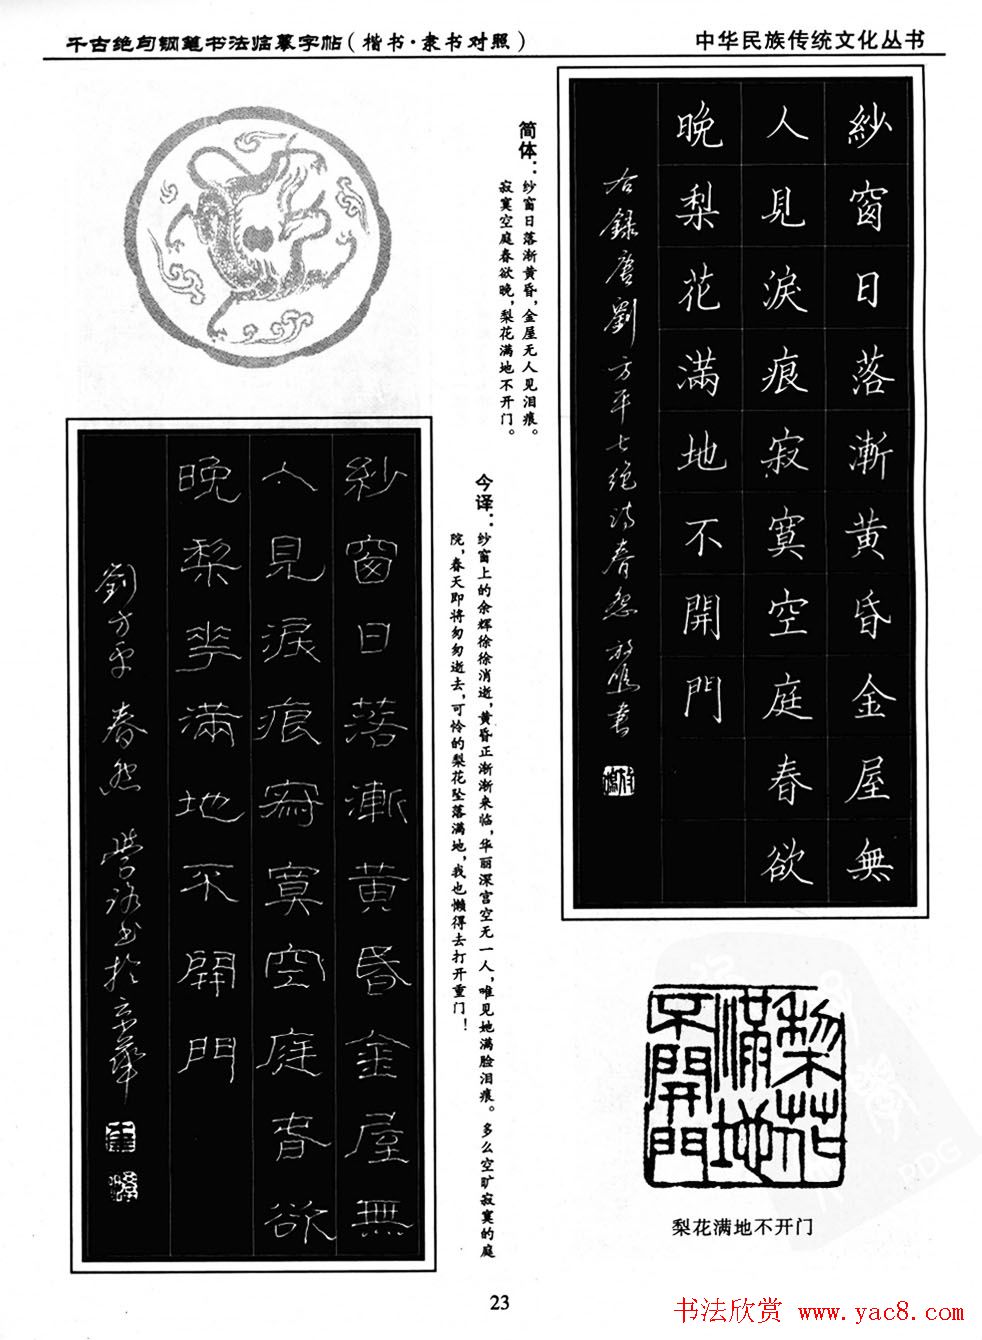 千古绝句钢笔书法临摹字帖(楷书·隶书对照)
中华民族传统文化丛书
紗窗日落漸黄昏金屋無
人見淚痕寂寞空庭春欲
晚梨花滿地不開門
右錄唐劉方平七绝诗春怨
简体:纱窗日落渐黄昏,金屋无人见泪痕。
寂寞空庭春欲晚,梨花满地不开门。
今译:纱窗上的余辉徐徐消逝,黄昏正渐渐来临,华丽深宫空无一人,唯见她满脸泪痕。多么空旷寂寞的庭
院,春天即将匆匆逝去,可怜的梨花坠落满地,我也懒得去打开重门!
紗窗日落漸黄昏金屋無
人見淚痕寂寞空庭春欲
晚梨花滿地不開門
劉方平 春怨
梨花
滿地
不開門
梨花满地不开门
23
书法欣赏 www.yac8.com
PDG